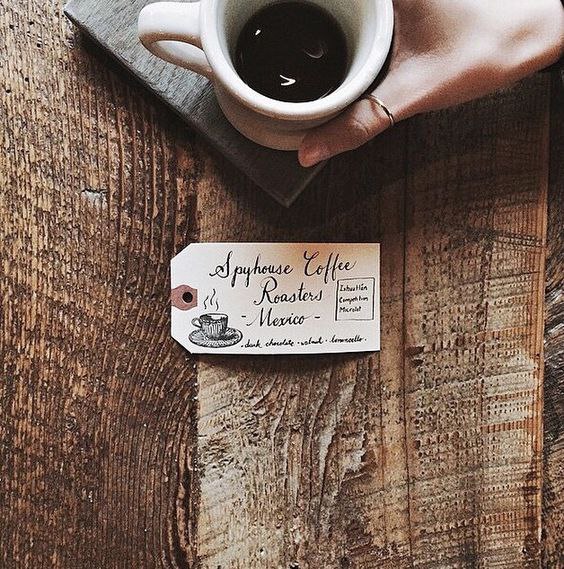 Spyhouse Coffee
Roasters
- Mexico -
Ixhuatlán
Competition
Microlot
• dark chocolate • walnut • limoncello •